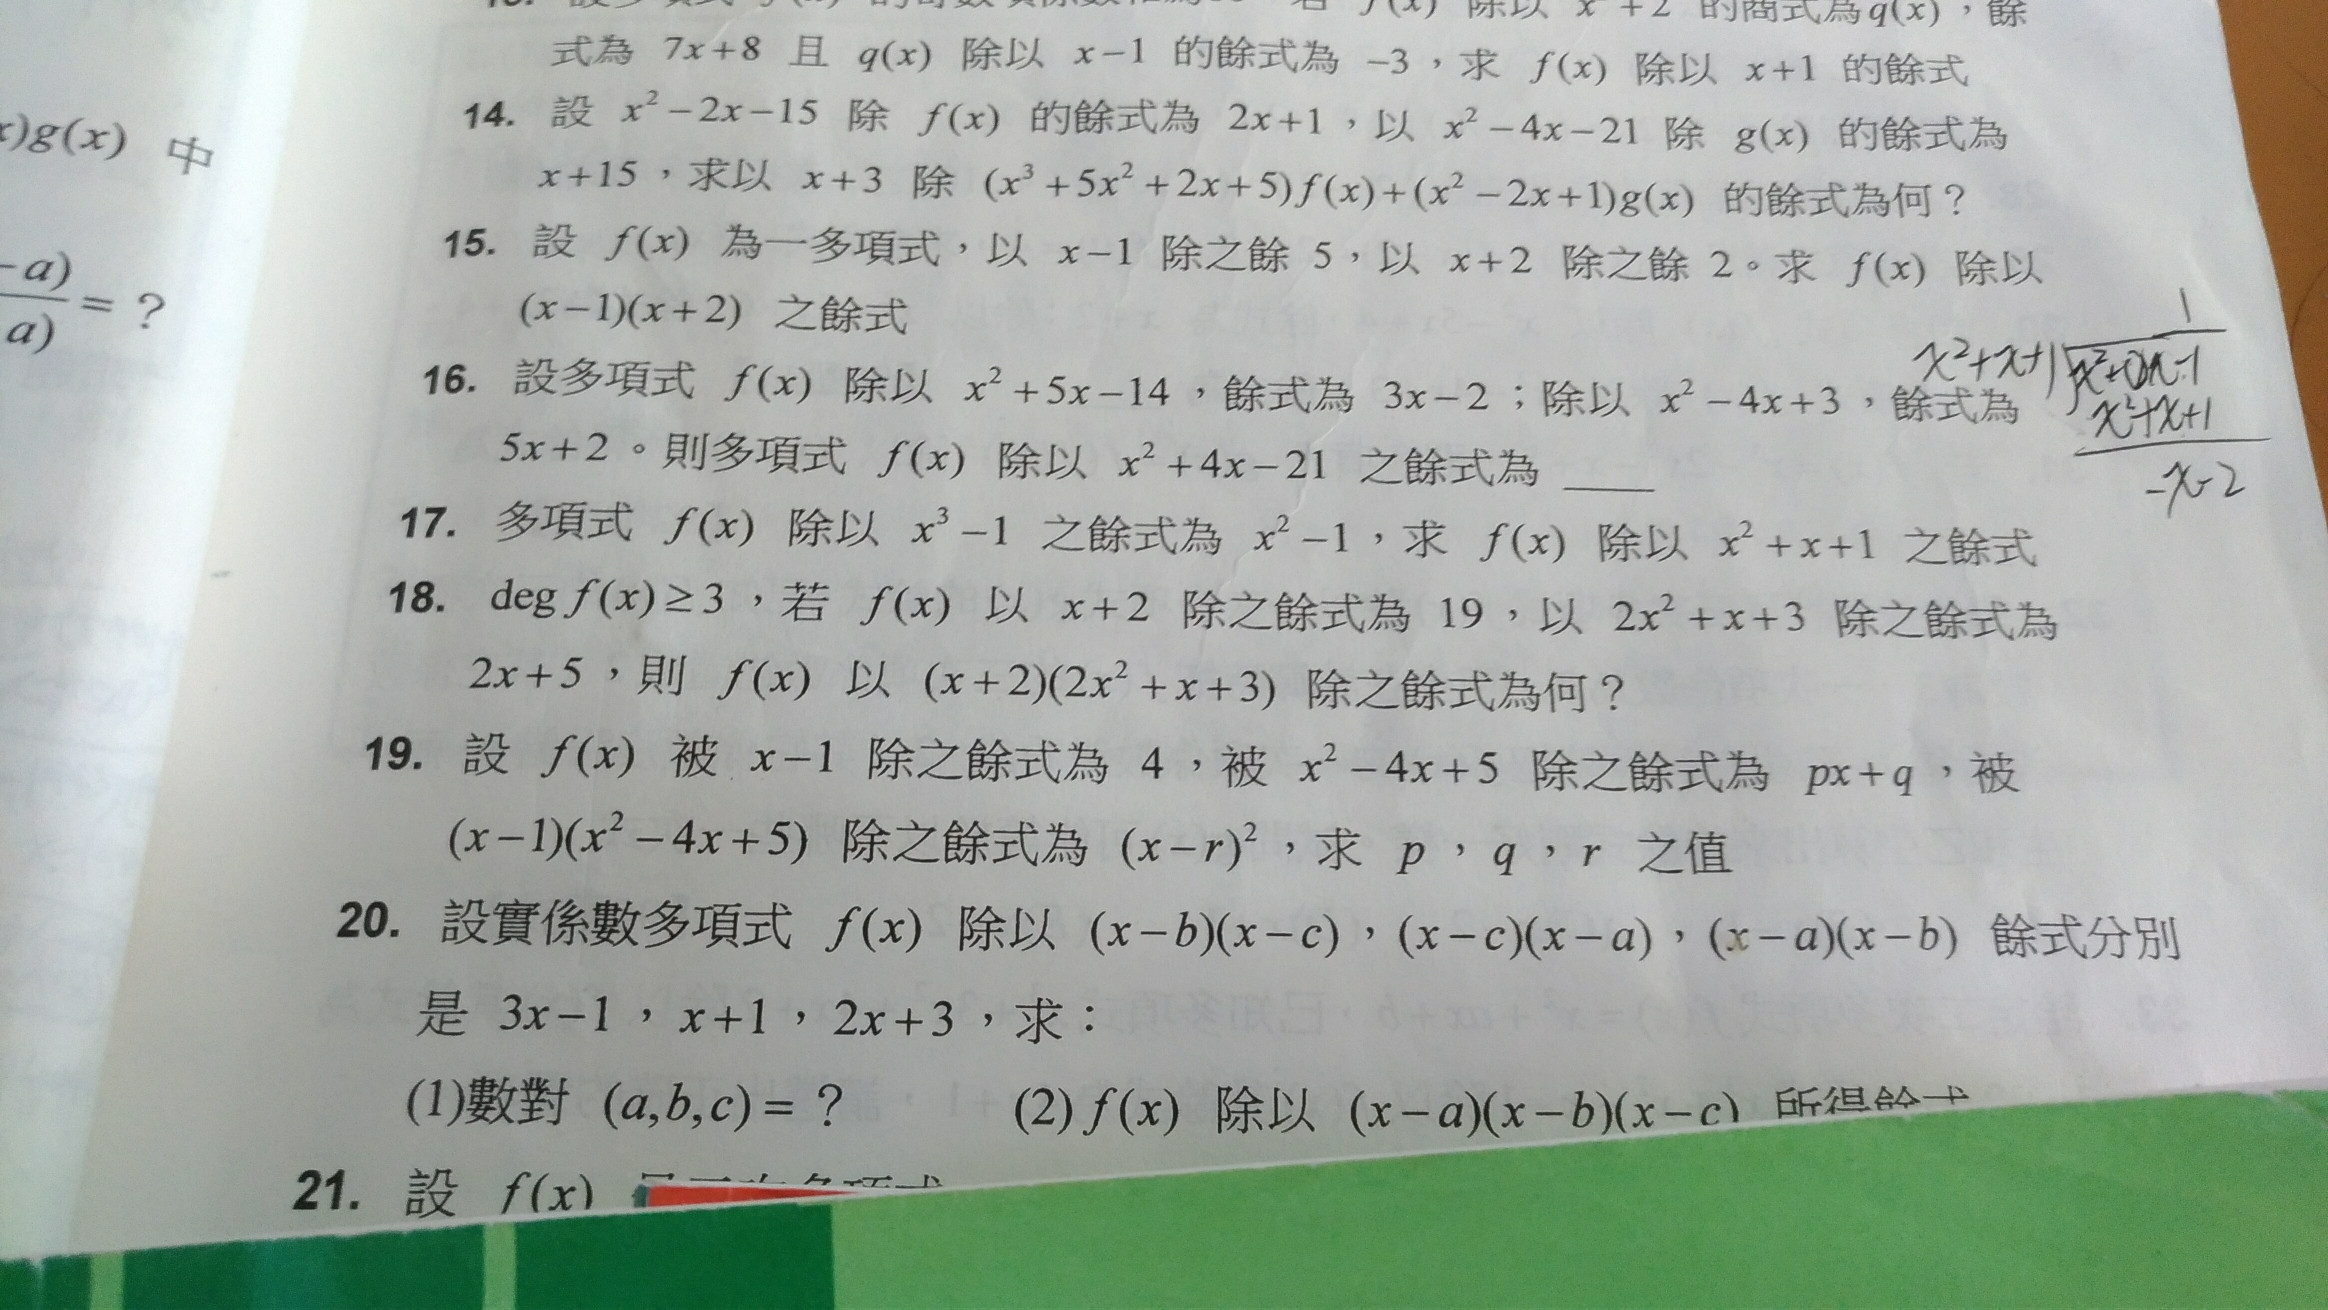 x)g(x) 中
-a)
a) = ?
式為 7x+8 且 q(x) 除以 x−1 的餘式為 −3，求 f(x) 除以 x+1 的餘式
14. 設 x²−2x−15 除 f(x) 的餘式為 2x+1，以 x²−4x−21 除 g(x) 的餘式為
x+15，求以 x+3 除 (x³+5x²+2x+5)f(x)+(x²−2x+1)g(x) 的餘式為何？
15. 設 f(x) 為一多項式，以 x−1 除之餘 5，以 x+2 除之餘 2。求 f(x) 除以
(x−1)(x+2) 之餘式
16. 設多項式 f(x) 除以 x²+5x−14，餘式為 3x−2；除以 x²−4x+3，餘式為
5x+2。則多項式 f(x) 除以 x²+4x−21 之餘式為 ____
17. 多項式 f(x) 除以 x³−1 之餘式為 x²−1，求 f(x) 除以 x²+x+1 之餘式
18. deg f(x)≥3，若 f(x) 以 x+2 除之餘式為 19，以 2x²+x+3 除之餘式為
2x+5，則 f(x) 以 (x+2)(2x²+x+3) 除之餘式為何？
19. 設 f(x) 被 x−1 除之餘式為 4，被 x²−4x+5 除之餘式為 px+q，被
(x−1)(x²−4x+5) 除之餘式為 (x−r)²，求 p，q，r 之值
20. 設實係數多項式 f(x) 除以 (x−b)(x−c)，(x−c)(x−a)，(x−a)(x−b) 餘式分別
是 3x−1，x+1，2x+3，求：
(1)數對 (a,b,c)=？ (2) f(x) 除以 (x−a)(x−b)(x−c) 所得餘式
21. 設 f(x)
1
x²+x+1 x²+0x-1
x²+x+1
-x-2